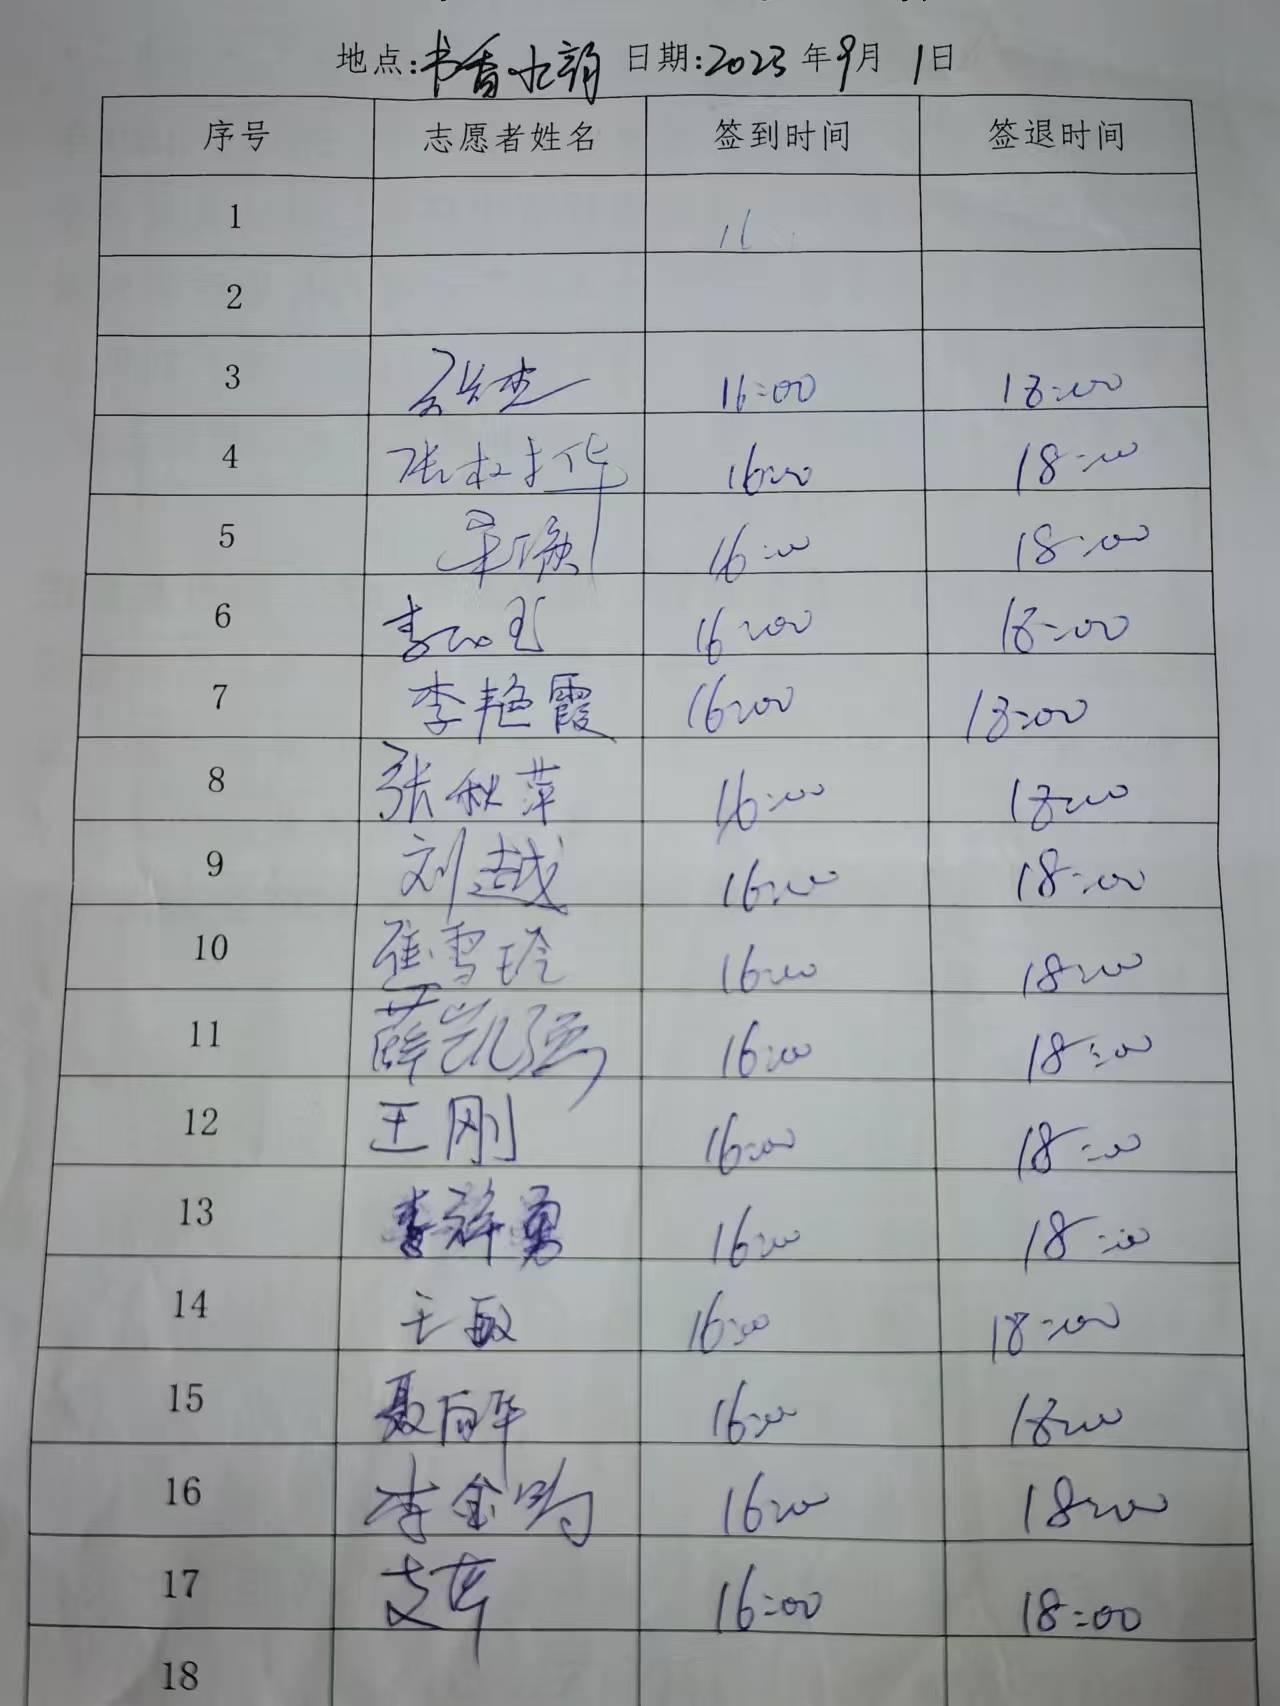 地点:书香水韵 日期:2023年9月1日
序号 志愿者姓名 签到时间 签退时间
1 16
2
3 16:00 18:00
4 张 华 16:00 18:00
5 16:00 18:00
6 李 16:00 18:00
7 李艳霞 16:00 18:00
8 张秋萍 16:00 18:00
9 刘越 16:00 18:00
10 雪玲 16:00 18:00
11 薛凯强 16:00 18:00
12 王刚 16:00 18:00
13 李祥勇 16:00 18:00
14 王敏 16:00 18:00
15 聂 华 16:00 18:00
16 李金 16:00 18:00
17 16:00 18:00
18